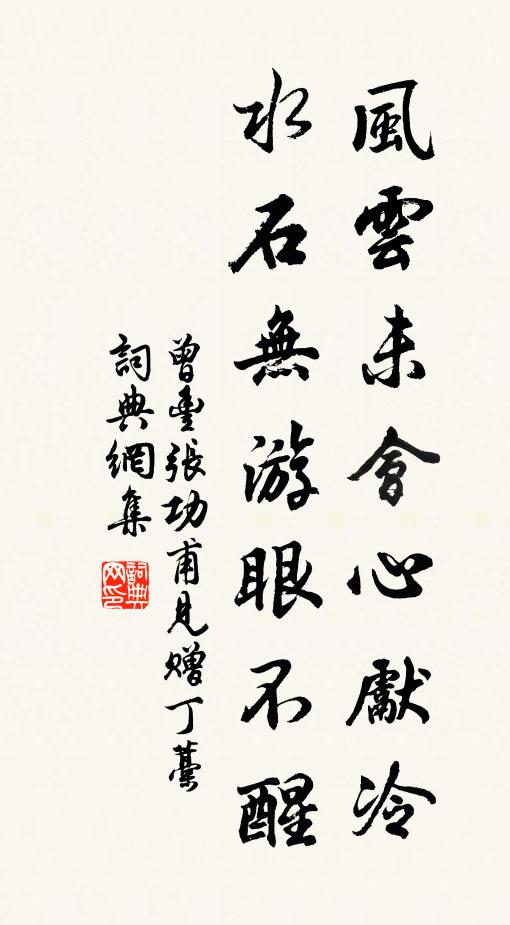 風雲未會心獻冷
水石無游眼不醒
曾豐張功甫見贈丁藁
詞典網集
詞典网印